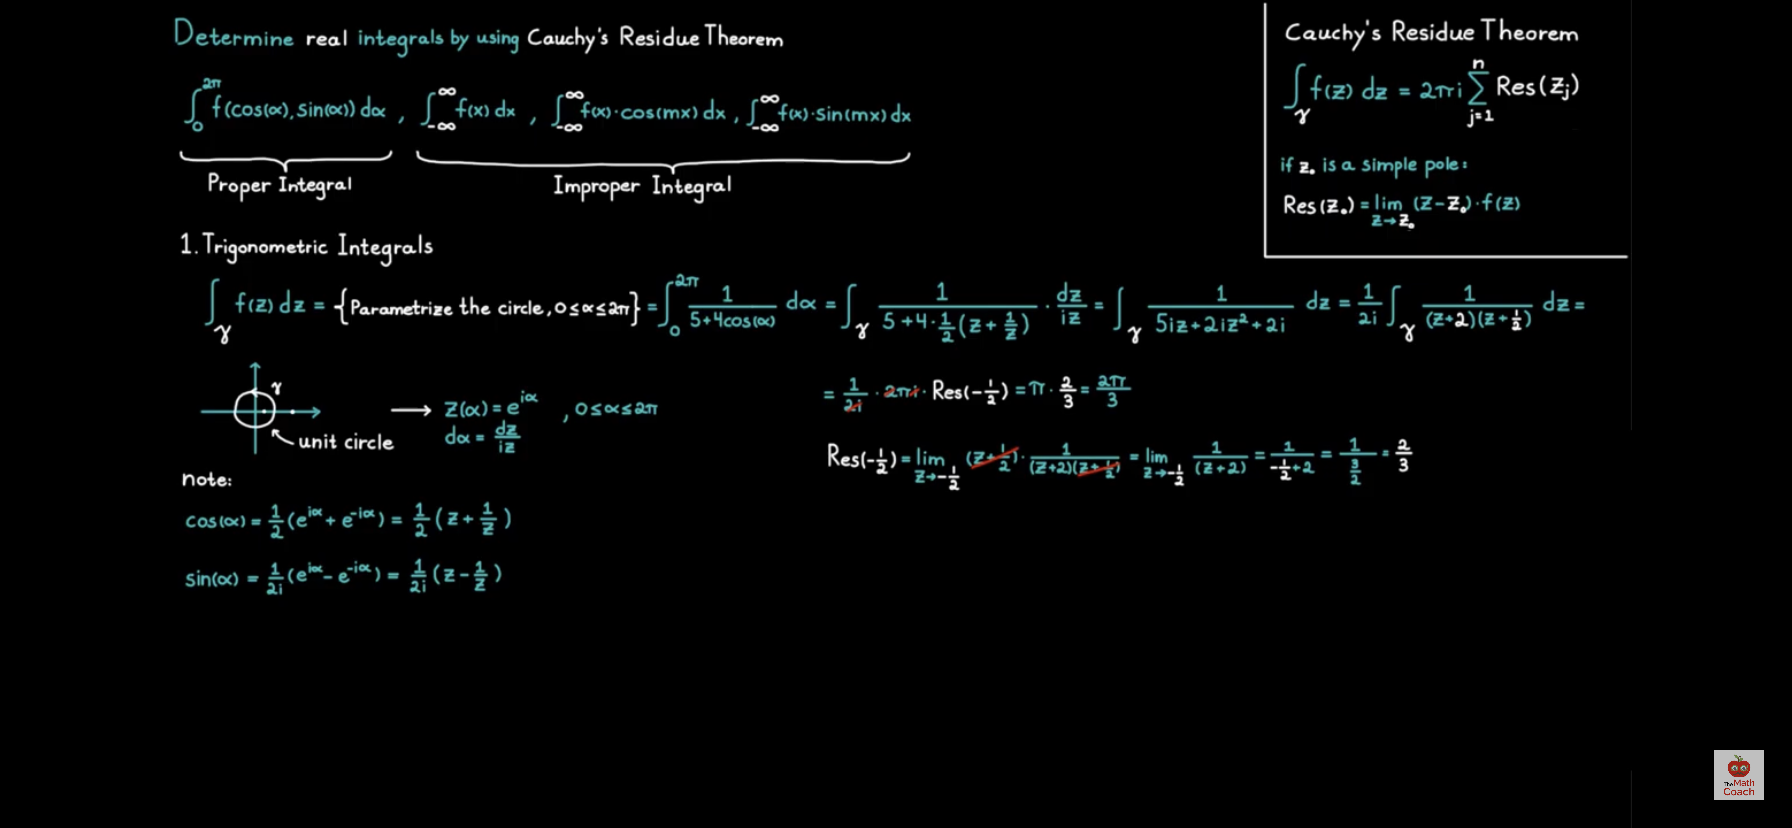 Determine real integrals by using Cauchy's Residue Theorem
∫₀^2π f(cos(α), sin(α)) dα , ∫_-∞^∞ f(x) dx , ∫_-∞^∞ f(x)·cos(mx) dx , ∫_-∞^∞ f(x)·sin(mx) dx
Proper Integral
Improper Integral
Cauchy's Residue Theorem
∫_γ f(z) dz = 2πi ∑_{j=1}^n Res(z_j)
if z₀ is a simple pole:
Res(z₀) = lim_{z→z₀} (z-z₀)·f(z)
1. Trigonometric Integrals
∫_γ f(z) dz = {Parametrize the circle, 0≤α≤2π} = ∫₀^2π 1/(5+4cos(α)) dα = ∫_γ 1/(5+4·1/2(z+1/z)) · dz/iz = ∫_γ 1/(5iz+2iz²+2i) dz = 1/2i ∫_γ 1/((z+2)(z+1/2)) dz =
= 1/2i · 2πi · Res(-1/2) = π · 2/3 = 2π/3
γ
unit circle
→ z(α) = e^iα , 0≤α≤2π
dα = dz/iz
Res(-1/2) = lim_{z→-1/2} (z+1/2) · 1/((z+2)(z+1/2)) = lim_{z→-1/2} 1/(z+2) = 1/(-1/2+2) = 1/(3/2) = 2/3
note:
cos(α) = 1/2(e^iα + e^-iα) = 1/2(z+1/z)
sin(α) = 1/2i(e^iα - e^-iα) = 1/2i(z-1/z)
The Math
Coach